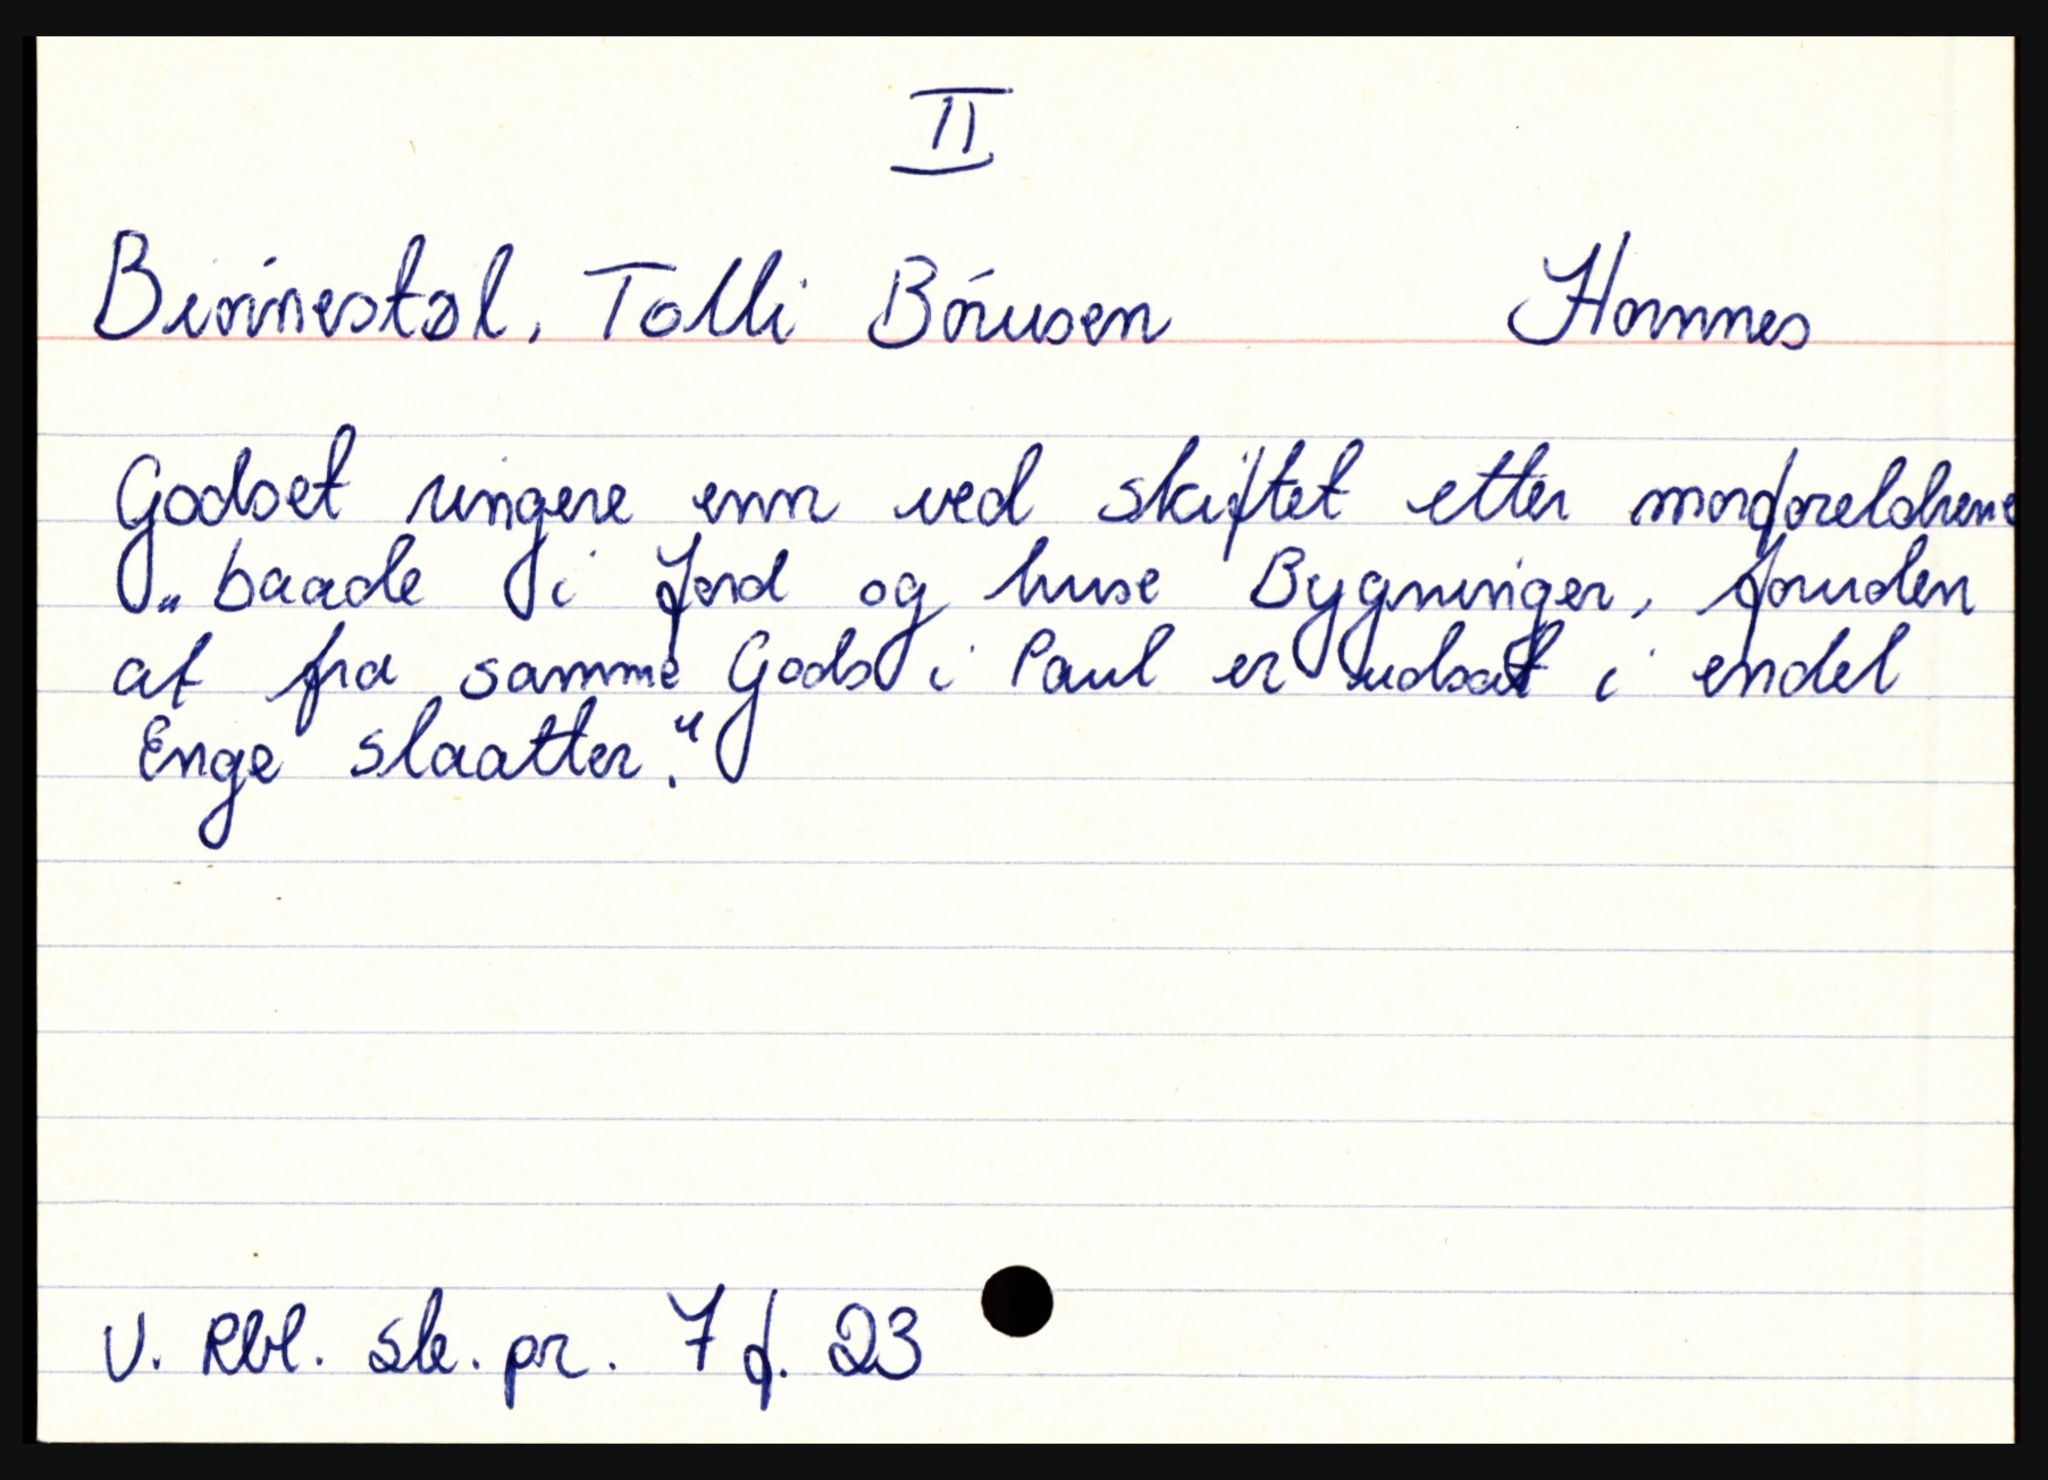 II
Birinestøl, Tolli Bórusen Hornnes
Godset ringere enn ved skiftet etter morforeldrene
„baade i Jord og huse Bygninger, foruden
at fra samme Gods i Paul er udsat i endel
Enge slaatter."
V. Rbl. sk. pr. 7 f. 23